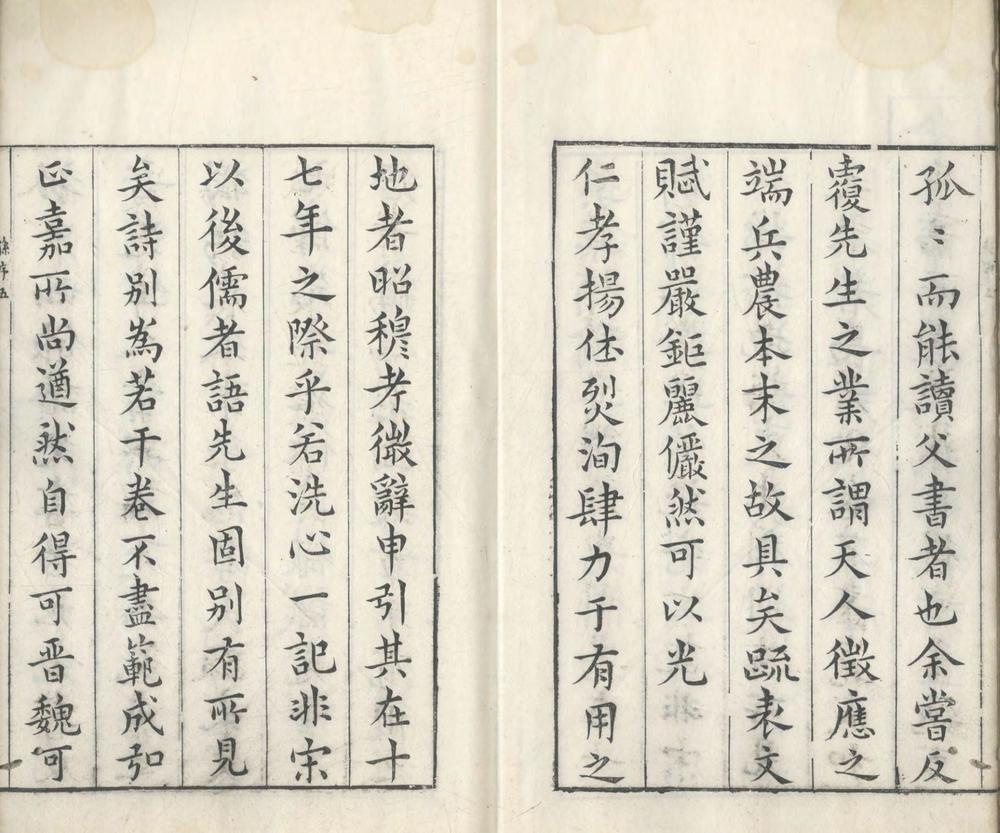 孤〻而能讀父書者也余嘗反
覆先生之業所謂天人徵應之
端兵農本末之故具矣疏表文
賦謹嚴鉅麗儼然可以光
仁孝揚休烈洵肆力于有用之
地者昭穆考徵辭申引其在十
七年之際乎若洗心一記非宋
以後儒者語先生固别有所見
矣詩别為若干卷不盡範成弘
正嘉所尚遒然自得可晋魏可
序五